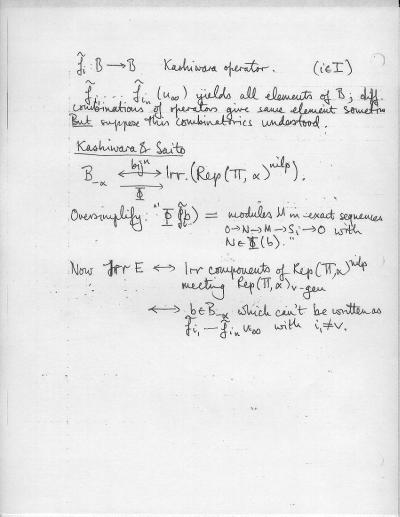 f̃ᵢ : B → B Kashiwara operator. (i∈I)
f̃ .... f̃ᵢₙ (u∞) yields all elements of B; diff.
combinations of operators give same element sometim
But suppose this combinatorics understood.
Kashiwara & Saito
B₋α ⟷ bijⁿ Φ Irr. (Rep(Π, α)ⁿⁱˡᵖ).
Oversimplify: "Φ(f̃b) = modules M in exact sequences
0→N→M→Sᵢ→0 with
N∈Φ(b)."
Now Irr E ⟷ Irr components of Rep(Π,α)ⁿⁱˡᵖ
meeting Rep(Π,α)ᵥ₋gen
⟷ b∈B₋α which can't be written as
f̃ᵢ₁ — f̃ᵢₙ u∞ with i₁≠v.